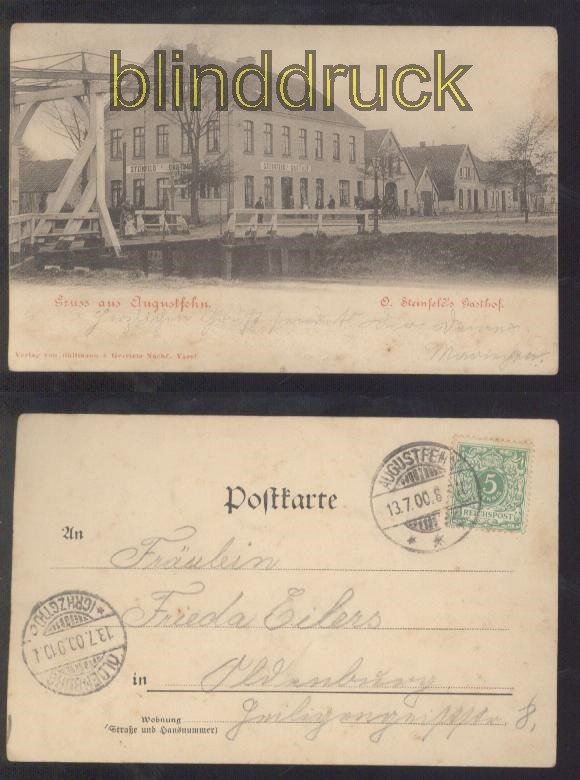 blinddruck
STEINFELD'S GASTHOF
Gruss aus Augustfehn.
O. Steinfeld's Gasthof.
Herzlichen Gruß sendet die Deine
Mariechen.
Verlag von Bültmann & Gerriets Nachf., Varel
Postkarte
AUGUSTFEHN
13.7.00.
5
REICHSPOST
An
Fräulein
Frieda Eilers
OLDENBURG
13.7.00.
in
Oldenburg
Heiligengeiststr. 8,
Wohnung
(Straße und Hausnummer)